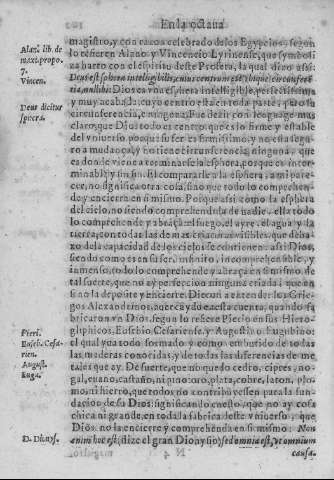 En la octaua
magistro, y con razon celebrado de los Egypcios, segun
lo refieren Alano y Vincencio Lyrinense, que symboliza
harto con el espiritu deste Profeta, la qual dize assi:
Deus est sphera intelligibilis, cuius centrum est vbique circumferentia,
nullibi: Dios es vna esphera inteligible, perfectissima
y muy acabada; cuyo centro està en toda parte, pero su
circunferencia, en ninguna. Fue dezir con lenguage mas
claro, que Dios todo es centro, que es lo firme y estable
del vniuerso, porque su ser es firmissimo, y no està sugeto
a mudança, y no tiene circunferencia, ninguna, que
es donde viene a terminarse la esphera, porque es interminable
y sin fin. El compararle a la esphera, a mi parecer,
no significa otra cosa, sino que todo lo comprehende
y encierra en si mismo. Porque assi como la esphera
del cielo, no siendo comprehendida de nadie, ella todo
lo comprehende y abraça: el fuego, el ayre, el agua y la
tierra, con todas las demas criaturas visibles, que debaxo
de la capacidad de los cielos se contienen: assi Dios,
siendo como es en su ser, infinito, incomprehensible, y
inmenso, todo lo comprehende y abraça en si mismo, de
tal suerte, que no ay perfeccion ninguna criada, que en
si no la deposite y encierre. Dieron a entender los Griegos
Alexandrinos, aunque con aduertencia
fabricaron vn Dios, segun lo refiere Pierio en sus Hieroglyphicos,
Eusebio Cesariense, y Augustino Eugubino:
el qual vuo todo formado y como embutido de todas
las maderas conocidas, y de todas las diferencias de metales
que ay. De suerte, que no quedo cedro, cipres, nogal,
euano, castaño, ni pino: oro, plata, cobre, laton, plomo,
ni hierro, que todos no contribuyessen para la fundacion
de su Dios: significando en esto, que no ay cosa
chica ni grande, en toda la fabrica deste vniuerso, que
Dios no la encierre y comprehenda en si mismo: Non
enim hoc est, (dize el gran Dionysio) sed omnia est, vt omnium
N 4
causa.
Alan. lib. de
maxi. propo.
7.
Vincen.
Deus dicitur
sphera.
Pieri.
Euseb. Cesarien.
August.
Euga.
D. Dionys.